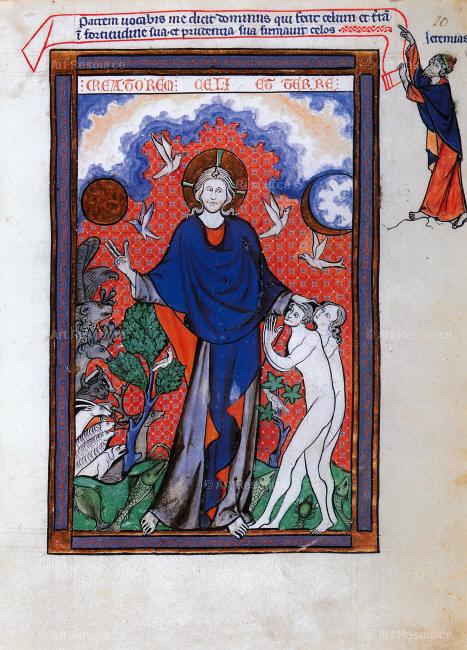 20
Patrem uocabis me dicit dominus qui fecit celum et t̄rā
ī fortitudine sua · et prudentia sua firmauit celos
Jeremias
CREATOREM CELI ET TERRE
© Art Resource